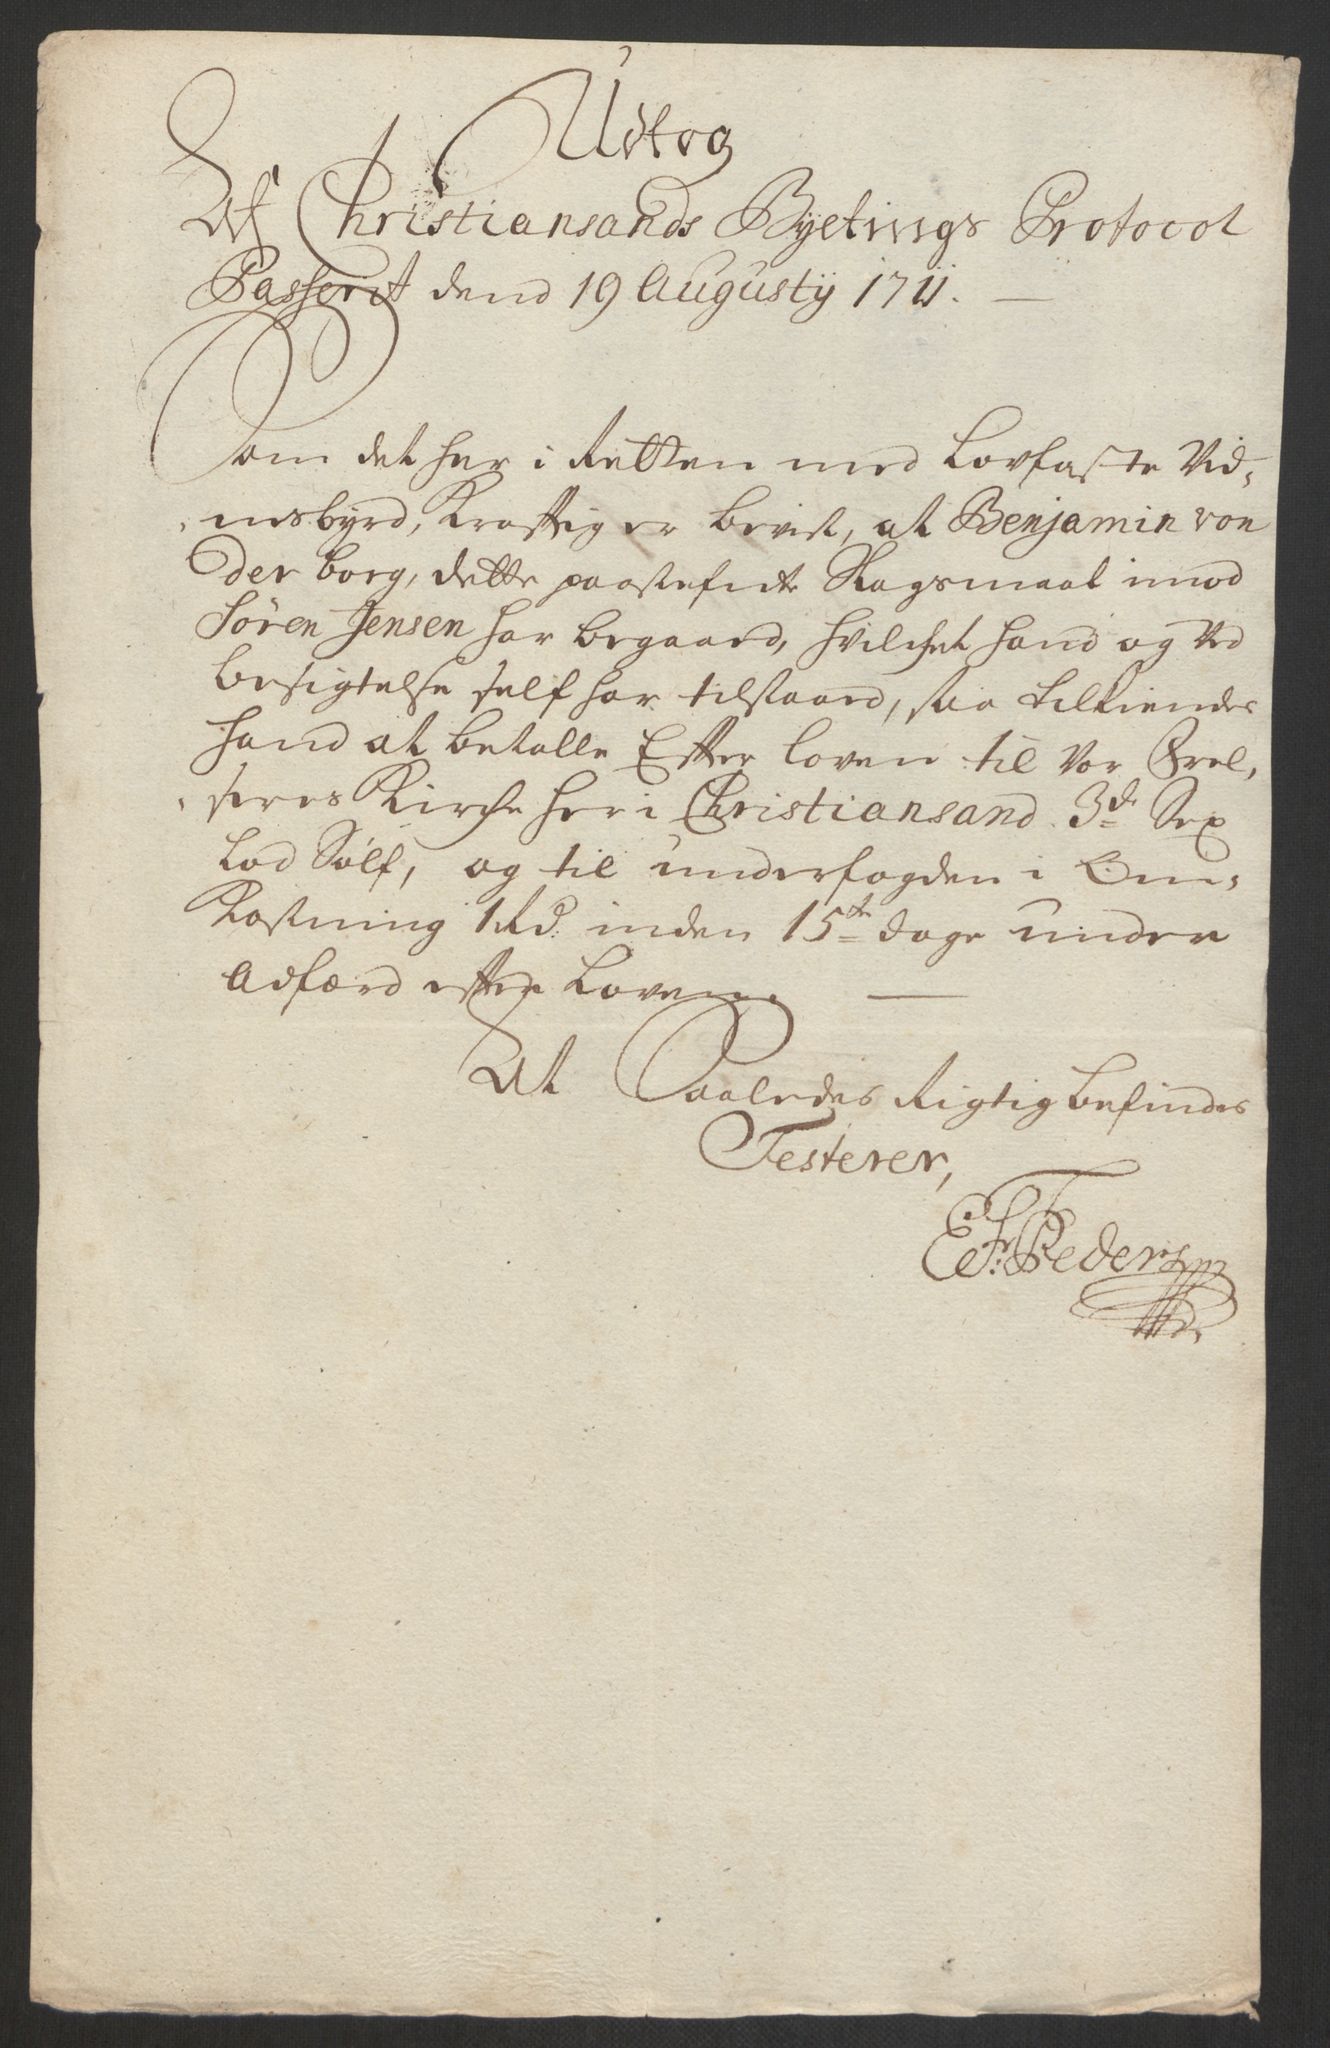 Udtog
Af Christiansands Byetings Protocol
Passerit dend 19 Augustij 1711.
Som det her i Retten med Lovfaste Vid=
nesbyrd, Krafftig er bevist, at Benjamin von
der borg, dette paastefnte Slagsmaal imod
Sören Jensen har begaaed, hvilchet hand og Ved
besigtelse self har tilstaaed, saa tilkiendes
hand at betalle Effter loven til Vor Frel,
seres Kirche her i Christiansand 3de Sex
Lod Sölf, og til underfogden i Om=
Kostning 1 Rd. inden 15ten dage under
Adfærd effter Loven.
At Saaledes Rigtig befindes
Testerer,
E: Pedersen